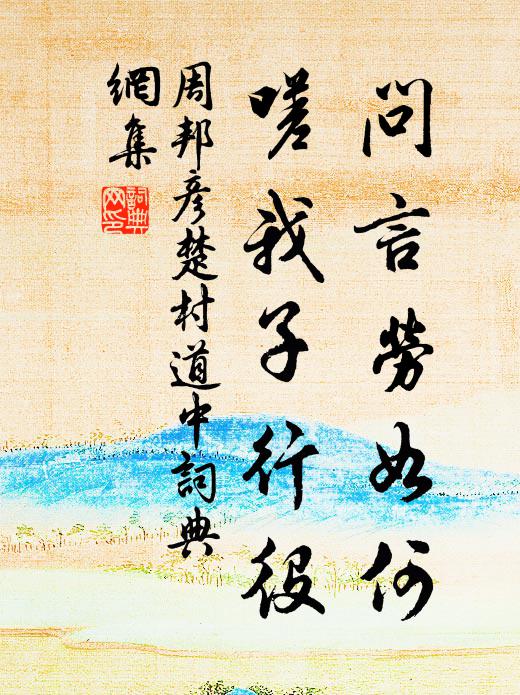 問言勞如何
嗟我子行役
周邦彥楚村道中詞典
網集
詞典
網印